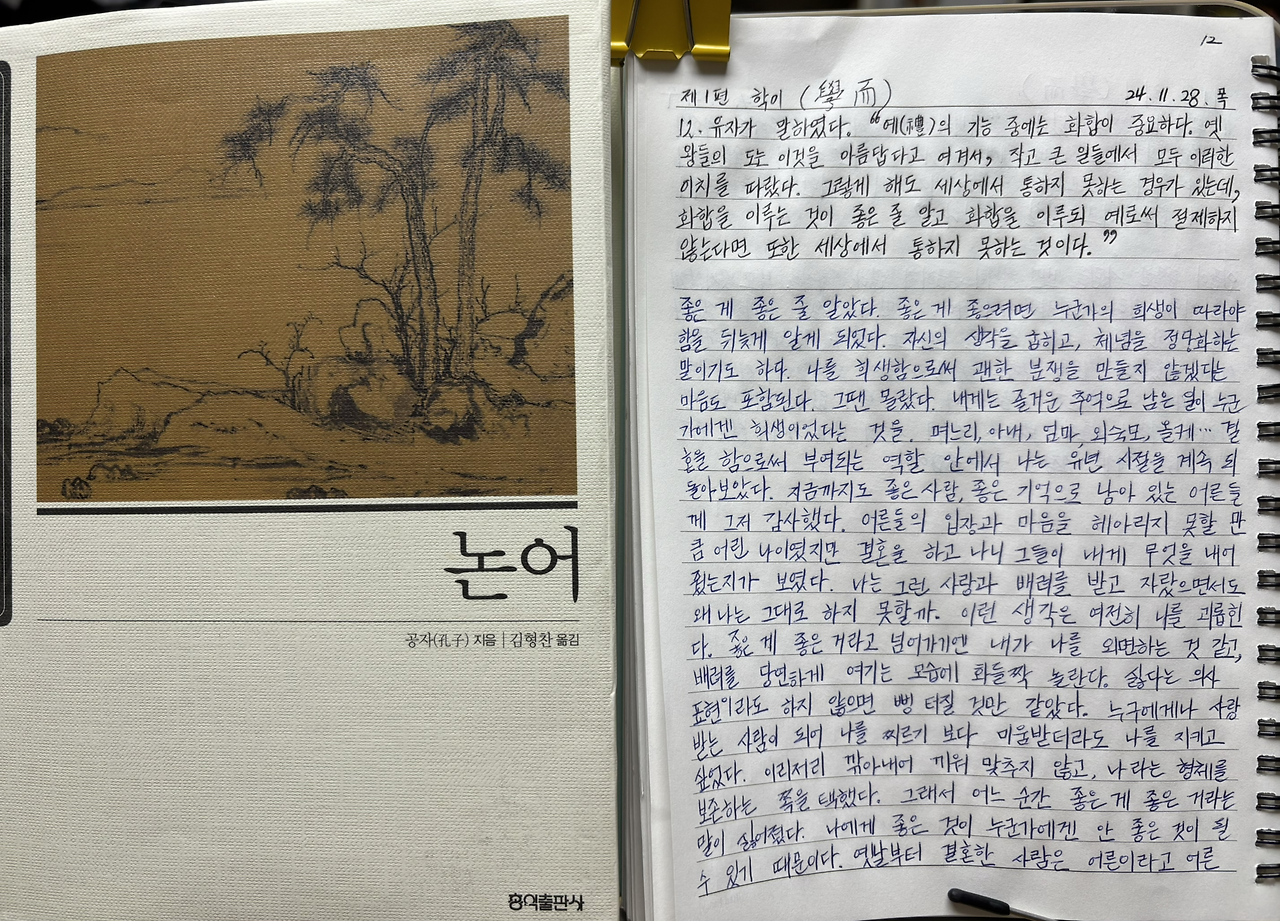 논어
공자(孔子) 지음 | 김형찬 옮김
홍익출판사
12
제1편 학이 (學而) 24.11.28.목
12. 유자가 말하였다. "예(禮)의 기능 중에는 화합이 중요하다. 옛
왕들의 도는 이것을 아름답다고 여겨서, 작고 큰 일들에서 모두 이러한
이치를 따랐다. 그렇게 해도 세상에서 통하지 못하는 경우가 있는데,
화합을 이루는 것이 좋은 줄 알고 화합을 이루되 예로써 절제하지
않는다면 또한 세상에서 통하지 못하는 것이다."
좋은 게 좋은 줄 알았다. 좋은 게 좋으려면 누군가의 희생이 따라야
함을 뒤늦게 알게 되었다. 자신의 생각을 굽히고, 체념을 정당화하는
말이기도 하다. 나를 희생함으로써 괜한 분쟁을 만들지 않겠다는
마음도 포함된다. 그땐 몰랐다. 내게는 즐거운 추억으로 남은 일이 누군
가에겐 희생이었다는 것을. 며느리, 아내, 엄마, 외숙모, 올케… 결
혼을 함으로써 부여되는 역할 안에서 나는 유년 시절을 계속 되
돌아보았다. 지금까지도 좋은 사람, 좋은 기억으로 남아 있는 어른들
께 그저 감사했다. 어른들의 입장과 마음을 헤아리지 못할 만
큼 어린 나이였지만 결혼을 하고 나니 그들이 내게 무엇을 내어
줬는지가 보였다. 나는 그런 사랑과 배려를 받고 자랐으면서도
왜 나는 그대로 하지 못할까. 이런 생각은 여전히 나를 괴롭힌
다. 좋은 게 좋은 거라고 넘어가기엔 내가 나를 외면하는 것 같고,
배려를 당연하게 여기는 모습에 화들짝 놀란다. 싫다는 의사
표현이라도 하지 않으면 뻥 터질 것만 같았다. 누구에게나 사랑
받는 사람이 되어 나를 찌르기 보다 미움받더라도 나를 지키고
싶었다. 이리저리 깎아내어 끼워 맞추지 않고, 나라는 형체를
보존하는 쪽을 택했다. 그래서 어느 순간 좋은 게 좋은 거라는
말이 싫어졌다. 나에게 좋은 것이 누군가에겐 안 좋은 것이 될
수 있기 때문이다. 옛날부터 결혼한 사람은 어른이라고 어른